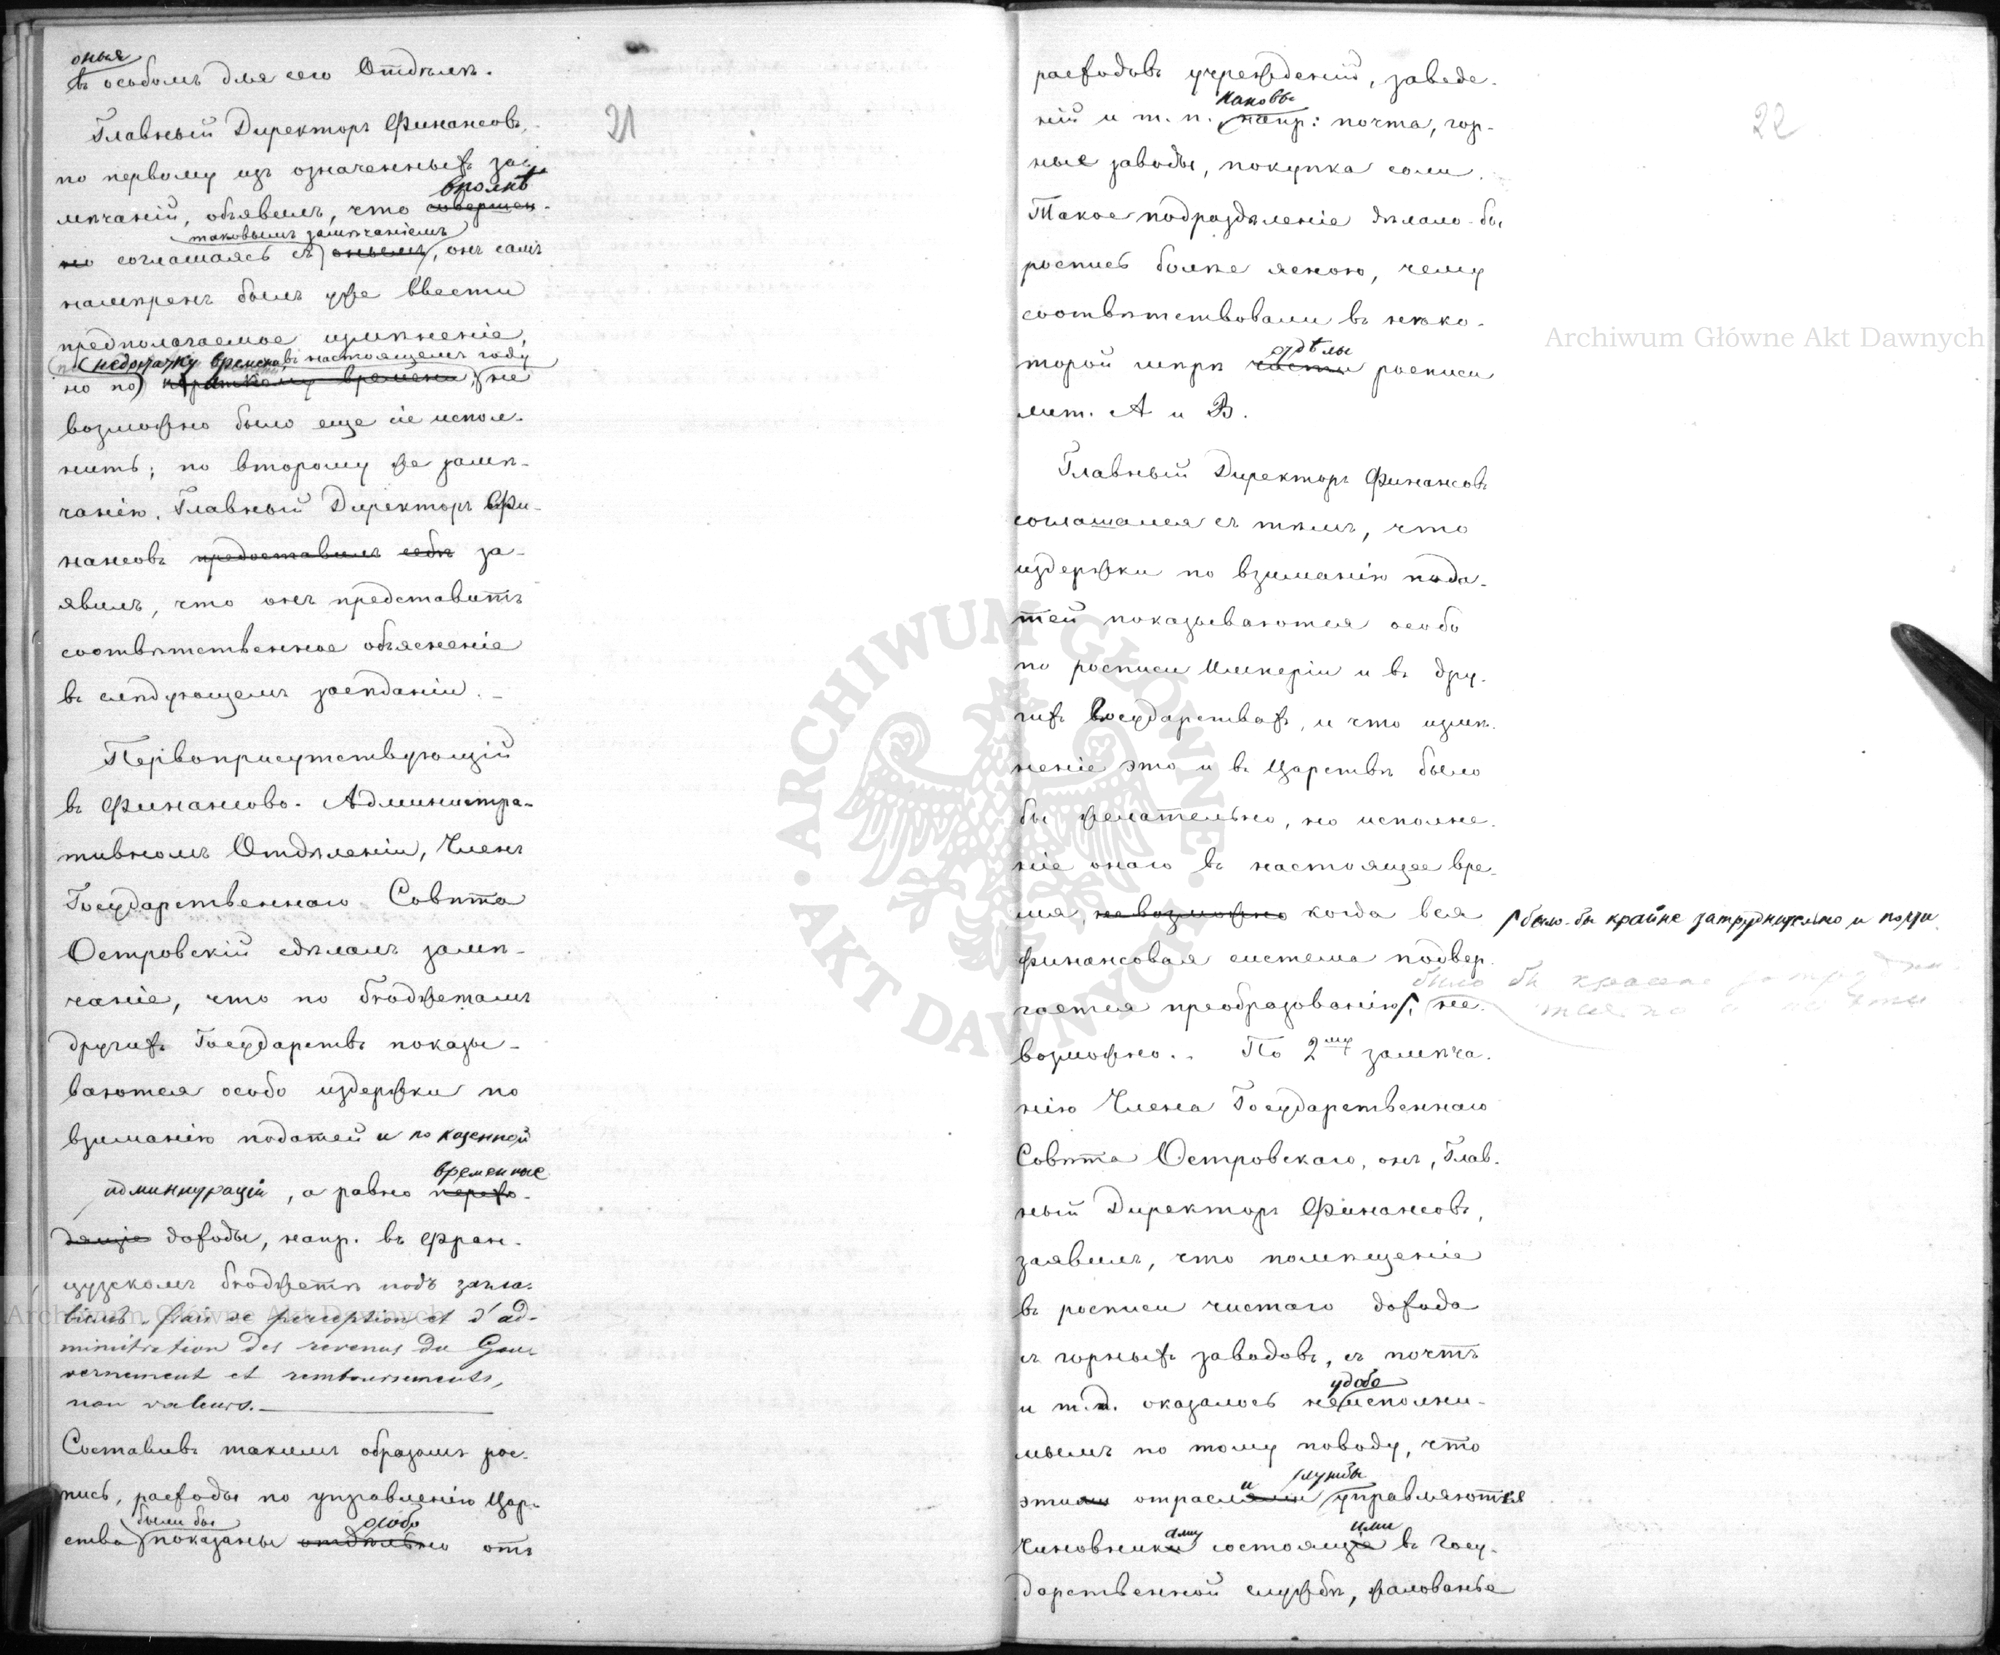 оныя
въ особомъ для сего Отдѣлѣ.
Главный Директоръ Финансовъ,
по первому изъ означенныхъ за-
вполнѣ
мѣчаній, объявилъ, что совершен-
таковымъ замѣчаніемъ
но соглашаясь съ онымъ, онъ самъ
намѣренъ былъ уже ввести
предполагаемое измѣненіе,
недостатку времени, въ настоящемъ году
но по краткому времени, не
возможно было еще сіе испол-
нить; по второму же замѣ-
чанію, Главный Директоръ Фи-
нансовъ предоставилъ себѣ за-
явилъ, что онъ представитъ
соотвѣтственное объясненіе
въ слѣдующемъ засѣданіи. –
Первоприсутствующій
въ Финансово-Администра-
тивномъ Отдѣленіи, Членъ
Государственнаго Совѣта
Островскій сдѣлалъ замѣ-
чаніе, что по бюджетамъ
другихъ Государствъ показы-
ваются особо издержки по
взиманію податей и по казенной
временные
администраціи, а равно перехо-
дящіе доходы, напр. въ Фран-
цузскомъ бюджетѣ подъ загла-
віемъ. frais de perception et d'ad-
ministration des revenus du Gou-
vernement et remboursements,
non valeurs.
Составивъ такимъ образомъ рос-
пись, расходы по управленію Цар-
были бы особо
ства показаны отдѣльно отъ
21
расходовъ учрежденій, заведе-
каковы
ній и т. п. напр: почта, гор-
ные заводы, покупка соли.
Такое подраздѣленіе дѣлало-бы
роспись болѣе ясною, чему
соотвѣтствовали въ нѣко-
отдѣлы
торой мѣрѣ части росписи
лит. А и В.
Главный Директоръ Финансовъ
соглашался съ тѣмъ, что
издержки по взиманію пода-
тей показываются особо
по росписи Имперіи и въ дру-
гихъ Государствахъ, и что измѣ-
неніе это и въ Царствѣ было
бы желательно, но исполне-
ніе онаго въ настоящее вре-
мя, невозможно когда вся
было-бы крайне затруднительно и почти
финансовая система подвер-
было бы крайне затрудни-
гается преобразованію, не-
тельно и почти
возможно. По 2му замѣча-
нію Члена Государственнаго
Совѣта Островскаго, онъ, Глав-
ный Директоръ Финансовъ,
заявилъ, что помѣщеніе
въ росписи чистаго дохода
съ горныхъ заводовъ, съ почтъ
удобо
и т.д. оказалось неисполни-
мымъ по тому поводу, что
и службы
этими отраслями управляются
ами ими
чиновники состоящіе въ Госу-
дарственной службѣ, жалованье
22
Archiwum Główne Akt Dawnych
Archiwum Główne Akt Dawnych
ARCHIWUM GŁÓWNE AKT DAWNYCH